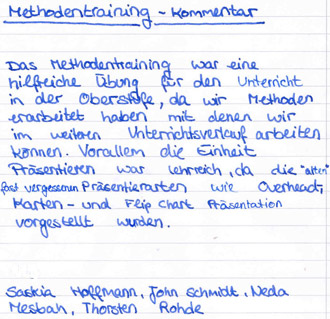 Methodentraining - Kommentar
Das Methodentraining war eine
hilfreiche Übung für den Unterricht
in der Oberstufe, da wir Methoden
erarbeitet haben mit denen wir
im weiteren Unterrichtsverlauf arbeiten
können. Vorallem die Einheit
Präsentieren war lehrreich, da die "alten"
fast vergessenen Präsentierarten wie Overhead,
Karten- und Flip Chart Präsentation
vorgestellt wurden.
Saskia Hoffmann, John Schmidt, Neda
Mesbah, Thorsten Rohde